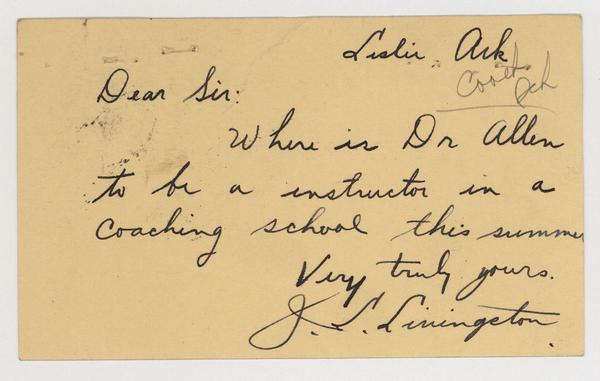 Leslie Ark
Dear Sir:
Where is Dr Allen
to be a instructor in a
coaching school this summer
Very truly yours.
J. S. Livingston.